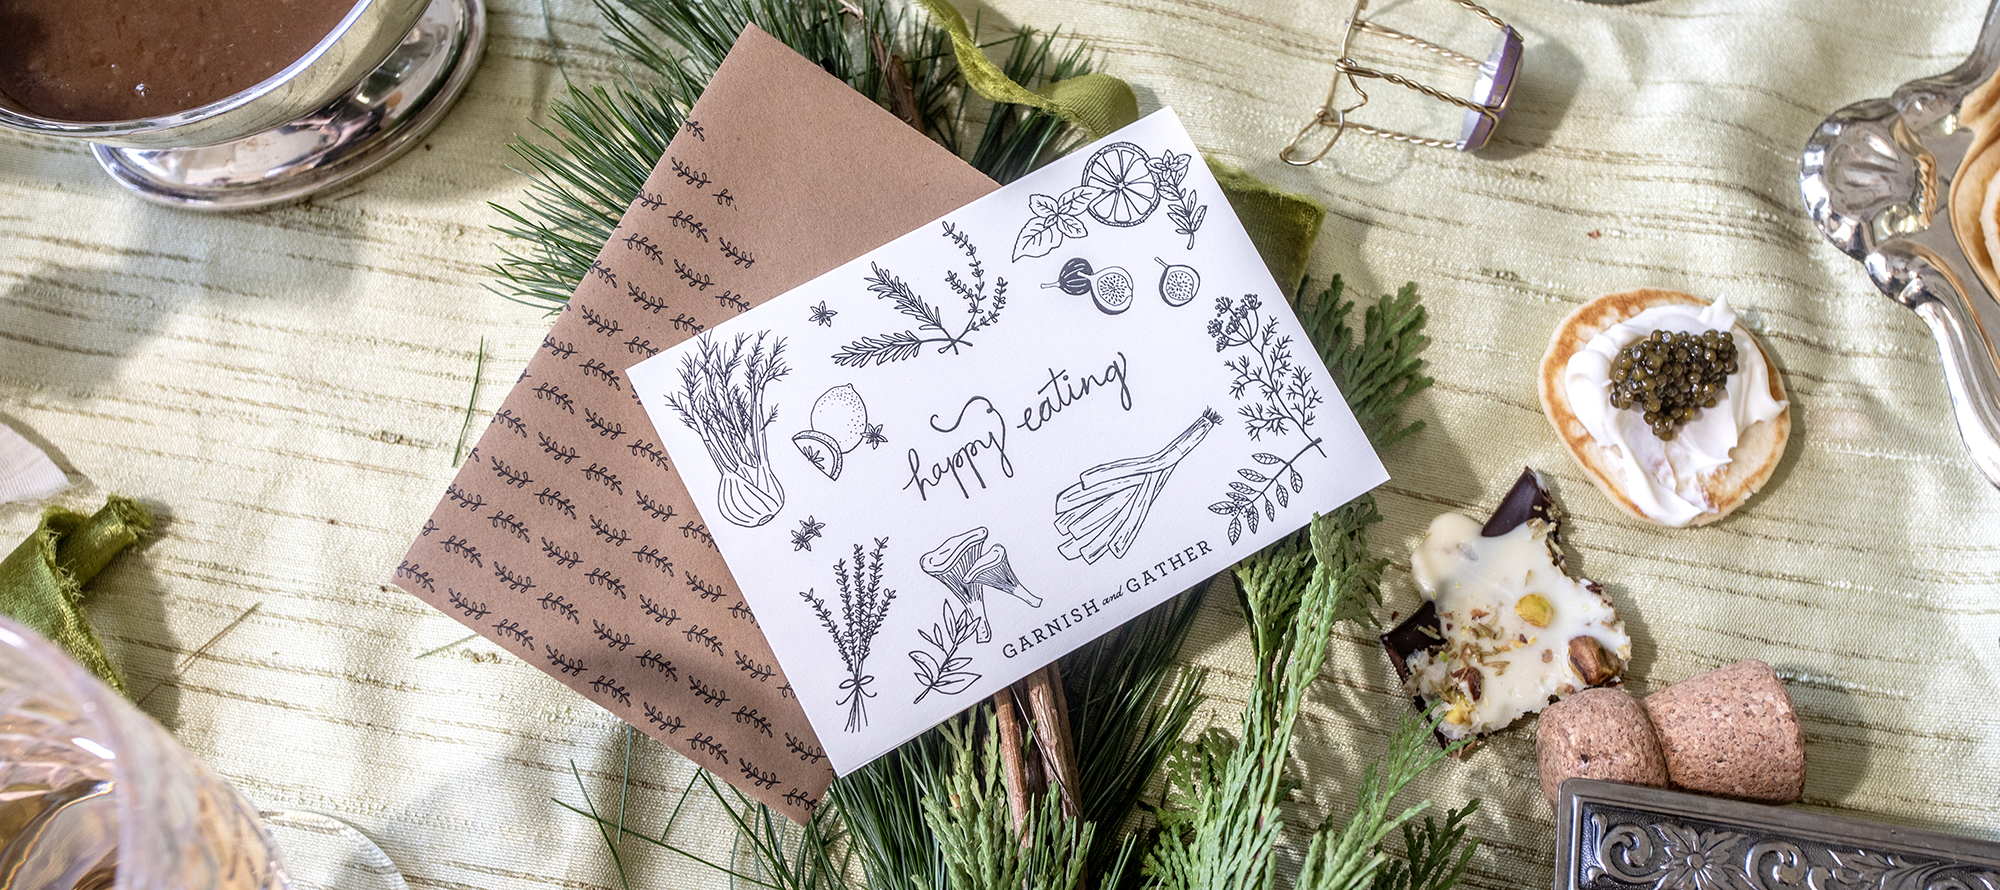 happy eating
GARNISH and GATHER